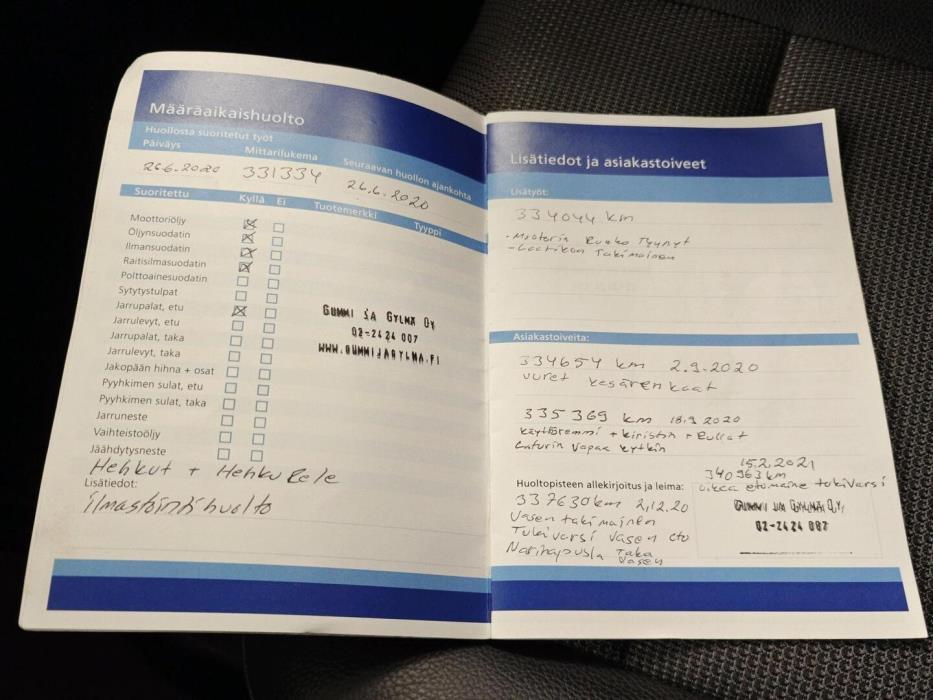 Määräaikaishuolto
Huollossa suoritetut työt
Päiväys Mittarilukema Seuraavan huollon ajankohta
26.6.2020 331334 26.6.2020
Suoritettu Kyllä Ei Tuotemerkki Tyyppi
Moottoriöljy
Öljynsuodatin
Ilmansuodatin
Raitisilmasuodatin
Polttoainesuodatin
Sytytystulpat
Jarrupalat, etu
Jarrulevyt, etu
Jarrupalat, taka
Jarrulevyt, taka
Jakopään hihna + osat
Pyyhkimen sulat, etu
Pyyhkimen sulat, taka
Jarruneste
Vaihteistoöljy
Jäähdytysneste
GUMMI JA GYLMÄ OY
02-2424 007
WWW.GUMMIJAGYLMA.FI
Hehkut + Hehku Rele
Lisätiedot:
ilmastointihuolto
Lisätiedot ja asiakastoiveet
Lisätyöt:
334044 km
- Moottorin Runko Tyynyt
- Laatikon Takimainen
Asiakastoiveita:
334654 km 2.9.2020
uuret kesärenkaat
335369 km 18.9 2020
käyttöremmi + kiristin + Rullat
Laturin vapaa kytkin
15.2.2021
340963 km
oikea etumaine tukivarsi
Huoltopisteen allekirjoitus ja leima:
337630 km 2.12.20
Vasen takimainen
Tukivarsi Vasen etu
Navihapusla Taka
Vasen
GUMMI JA GYLMÄ OY
02-2424 007